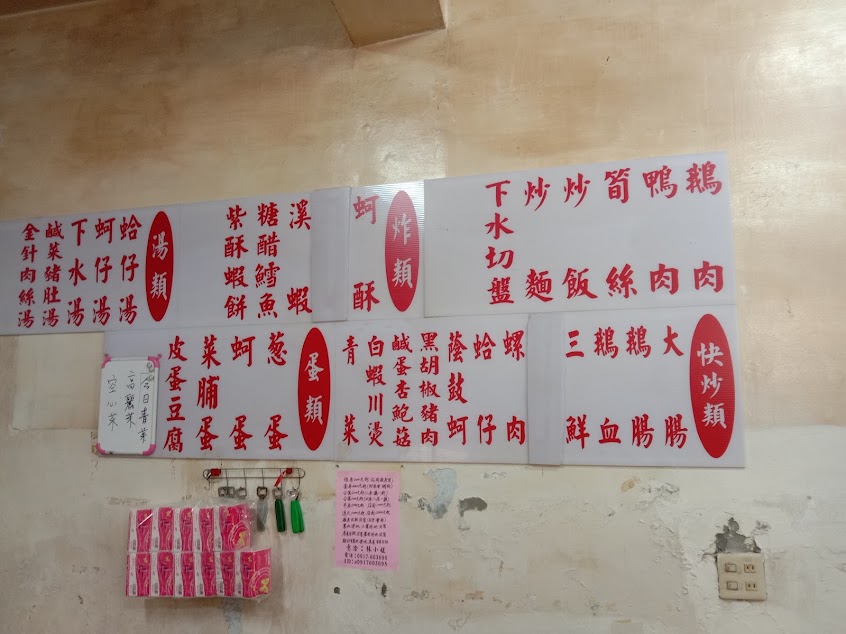 鵝肉
鴨肉
筍絲
炒飯
炒麵
下水切盤
炸類
蚵酥
溪蝦
糖醋鱈魚
紫酥蝦餅
湯類
蛤仔湯
蚵仔湯
下水湯
鹹菜豬肚湯
金針肉絲湯
快炒類
大腸
鵝腸
鵝血
三鮮
螺肉
蛤仔
蔭鼓蚵
黑胡椒豬肉
鹹蛋杏鮑菇
白蝦川燙
青菜
蛋類
葱蛋
蚵蛋
菜脯蛋
皮蛋豆腐
今日青菜
高麗菜
空心菜